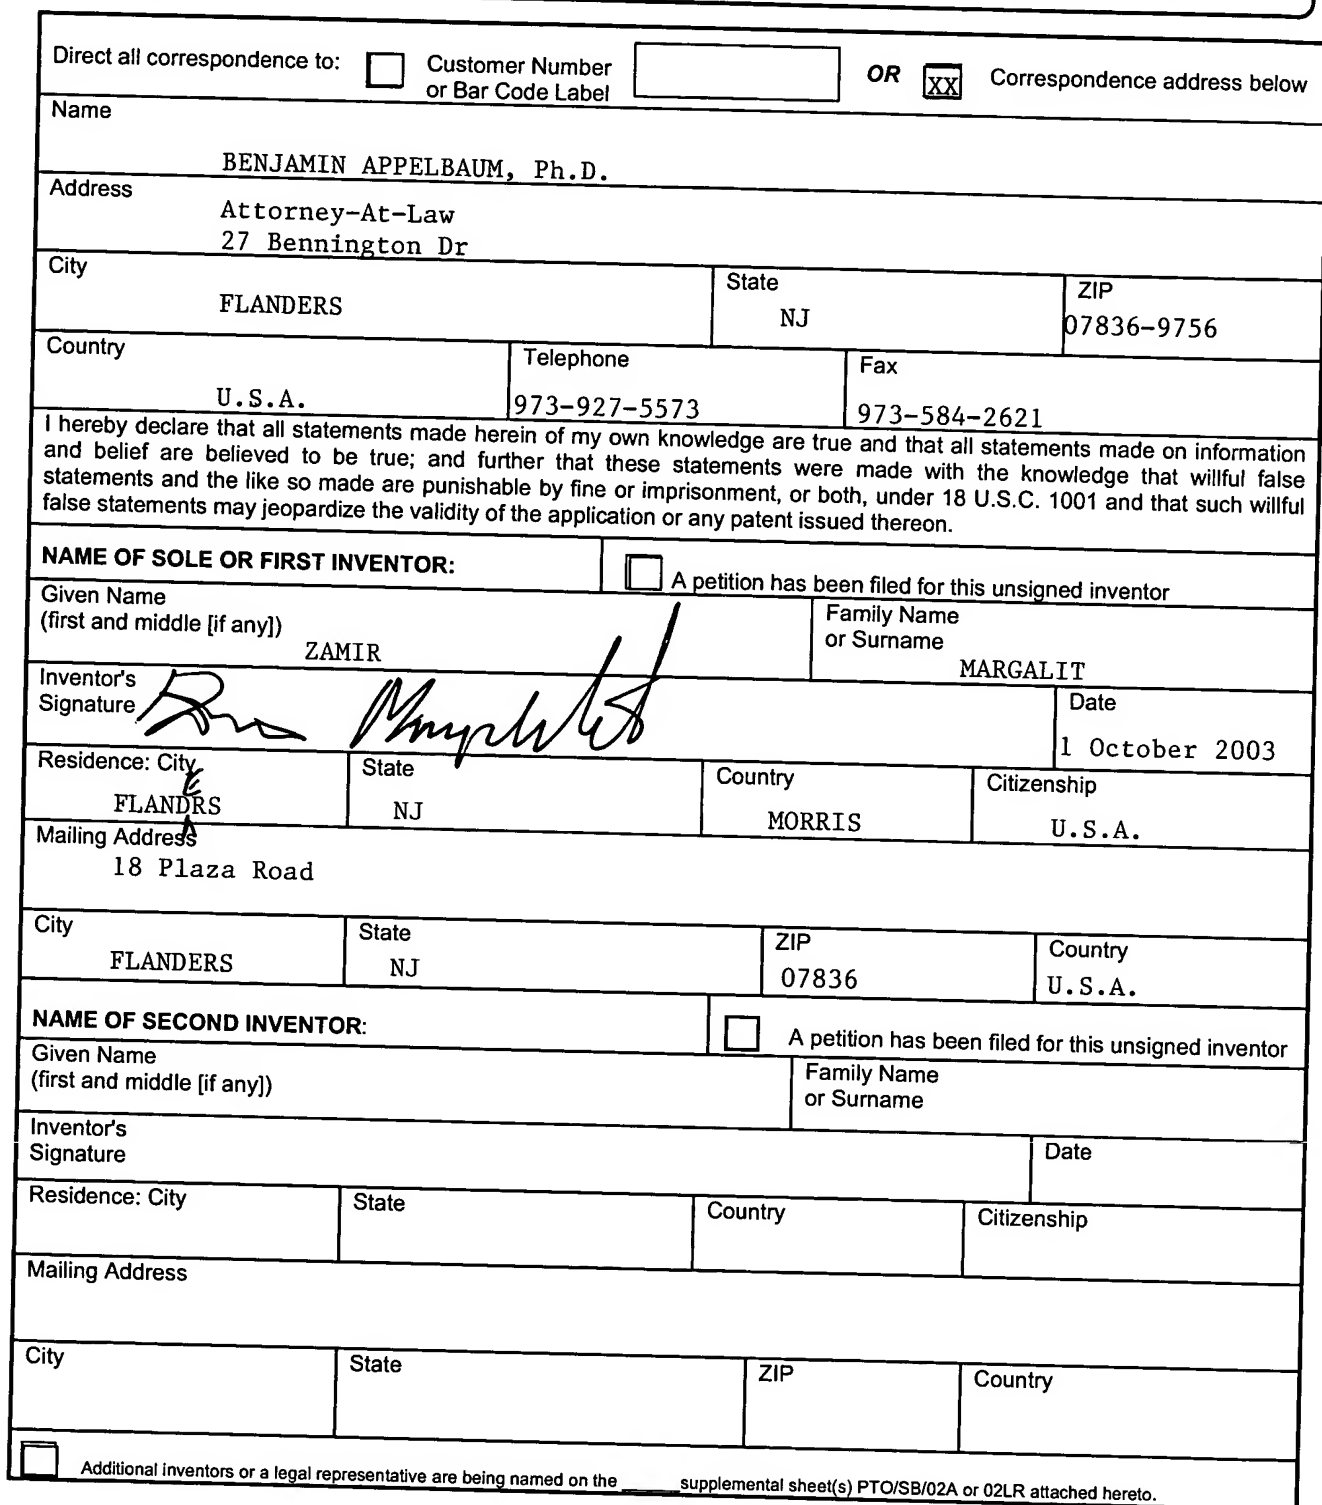 Direct all correspondence to: Customer Number or Bar Code Label OR XX Correspondence address below
Name
BENJAMIN APPELBAUM, Ph.D.
Address
Attorney-At-Law
27 Bennington Dr
City State ZIP
FLANDERS NJ 07836-9756
Country Telephone Fax
U.S.A. 973-927-5573 973-584-2621
I hereby declare that all statements made herein of my own knowledge are true and that all statements made on information
and belief are believed to be true; and further that these statements were made with the knowledge that willful false
statements and the like so made are punishable by fine or imprisonment, or both, under 18 U.S.C. 1001 and that such willful
false statements may jeopardize the validity of the application or any patent issued thereon.
NAME OF SOLE OR FIRST INVENTOR: A petition has been filed for this unsigned inventor
Given Name Family Name
(first and middle [if any]) or Surname
ZAMIR MARGALIT
Inventor's Date
Signature
1 October 2003
Residence: City State Country Citizenship
FLANDERS NJ MORRIS U.S.A.
Mailing Address
18 Plaza Road
City State ZIP Country
FLANDERS NJ 07836 U.S.A.
NAME OF SECOND INVENTOR: A petition has been filed for this unsigned inventor
Given Name Family Name
(first and middle [if any]) or Surname
Inventor's
Signature Date
Residence: City State Country Citizenship
Mailing Address
City State ZIP Country
Additional inventors or a legal representative are being named on the _____ supplemental sheet(s) PTO/SB/02A or 02LR attached hereto.